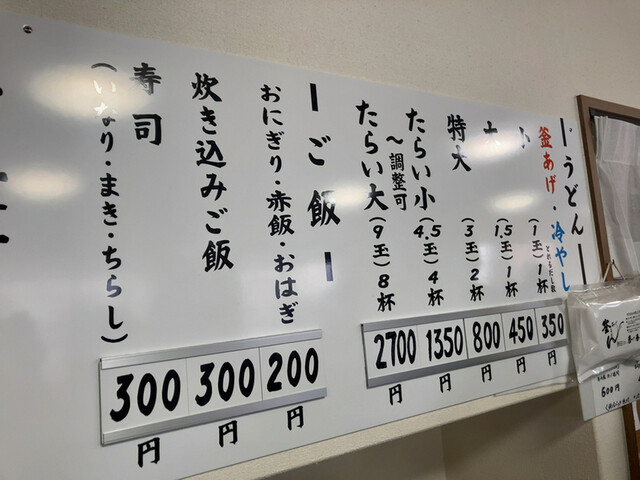 うどん
釜あげ・冷やし
どれもだし衣
小(1玉)1杯 350円
大(1.5玉)1杯 450円
特大(3玉)2杯 800円
たらい小(4.5玉)4杯 1350円
〜調整可
たらい大(9玉)8杯 2700円
ーご飯ー
おにぎり・赤飯・おはぎ 200円
炊き込みご飯 300円
寿司 300円
(いなり・まき・ちらし)
600円